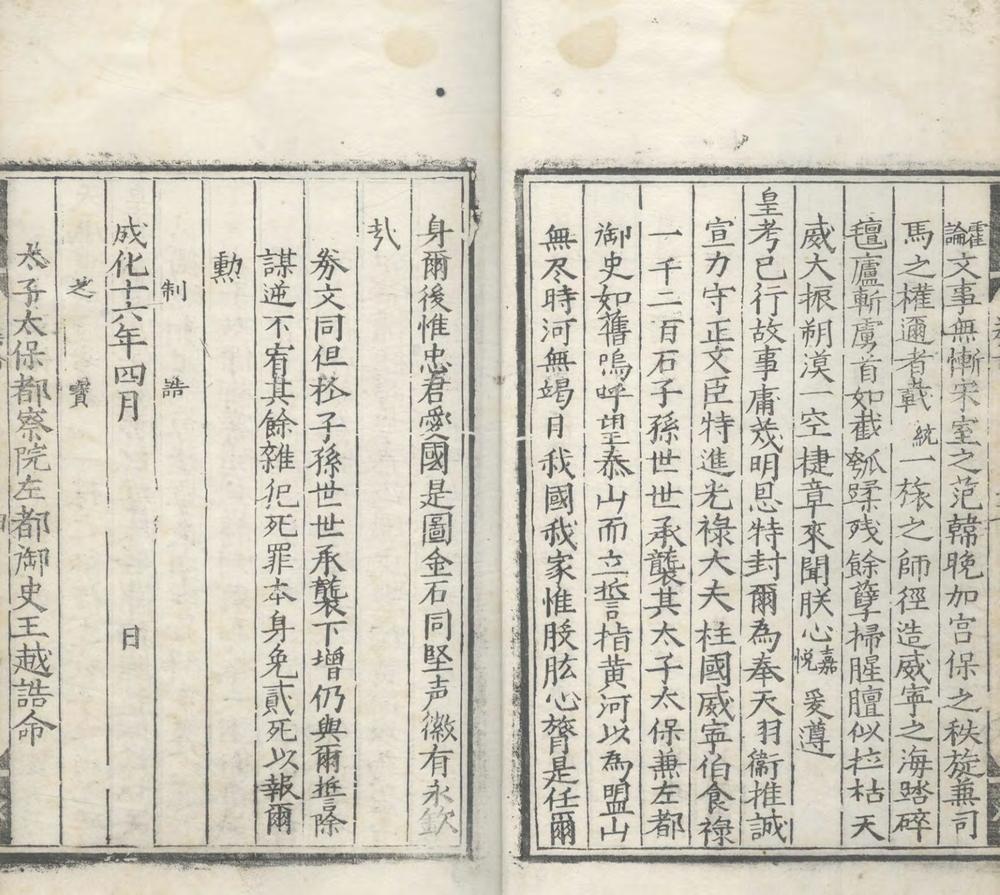 霍論文事無慚宋室之范韓晚加宮保之秩旋兼司
馬之權邇者載統一旅之師徑造威寧之海踏碎
氊廬斬虜首如截瓠蹂残餘孽掃腥膻似拉枯天
威大振朔漠一空捷章來聞朕心嘉悅爰遵
皇考已行故事庸茂明恩特封爾為奉天羽衛推誠
宣力守正文臣特進光祿大夫柱國威寧伯食祿
一千二百石子孫世世承襲其太子太保兼左都
御史如舊嗚呼望泰山而立誓指黃河以為盟山
無尽時河無竭日我國我家惟股肱心膂是任爾
身爾後惟忠君愛國是圖金石同堅声徽有永欽
哉
券文同但於子孫世世承襲下增仍與爾誓除
謀逆不宥其餘雜犯死罪本身免貳死以報爾
勳
制誥
成化十六年四月 日
之寶
太子太保都察院左都御史王越誥命